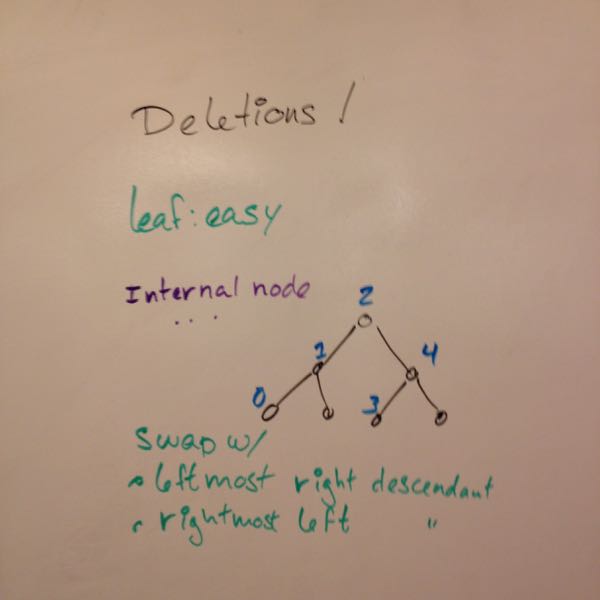 Deletions!
leaf: easy
Internal node
...
2
1 4
0 3
swap w/
• leftmost right descendant
• rightmost left "